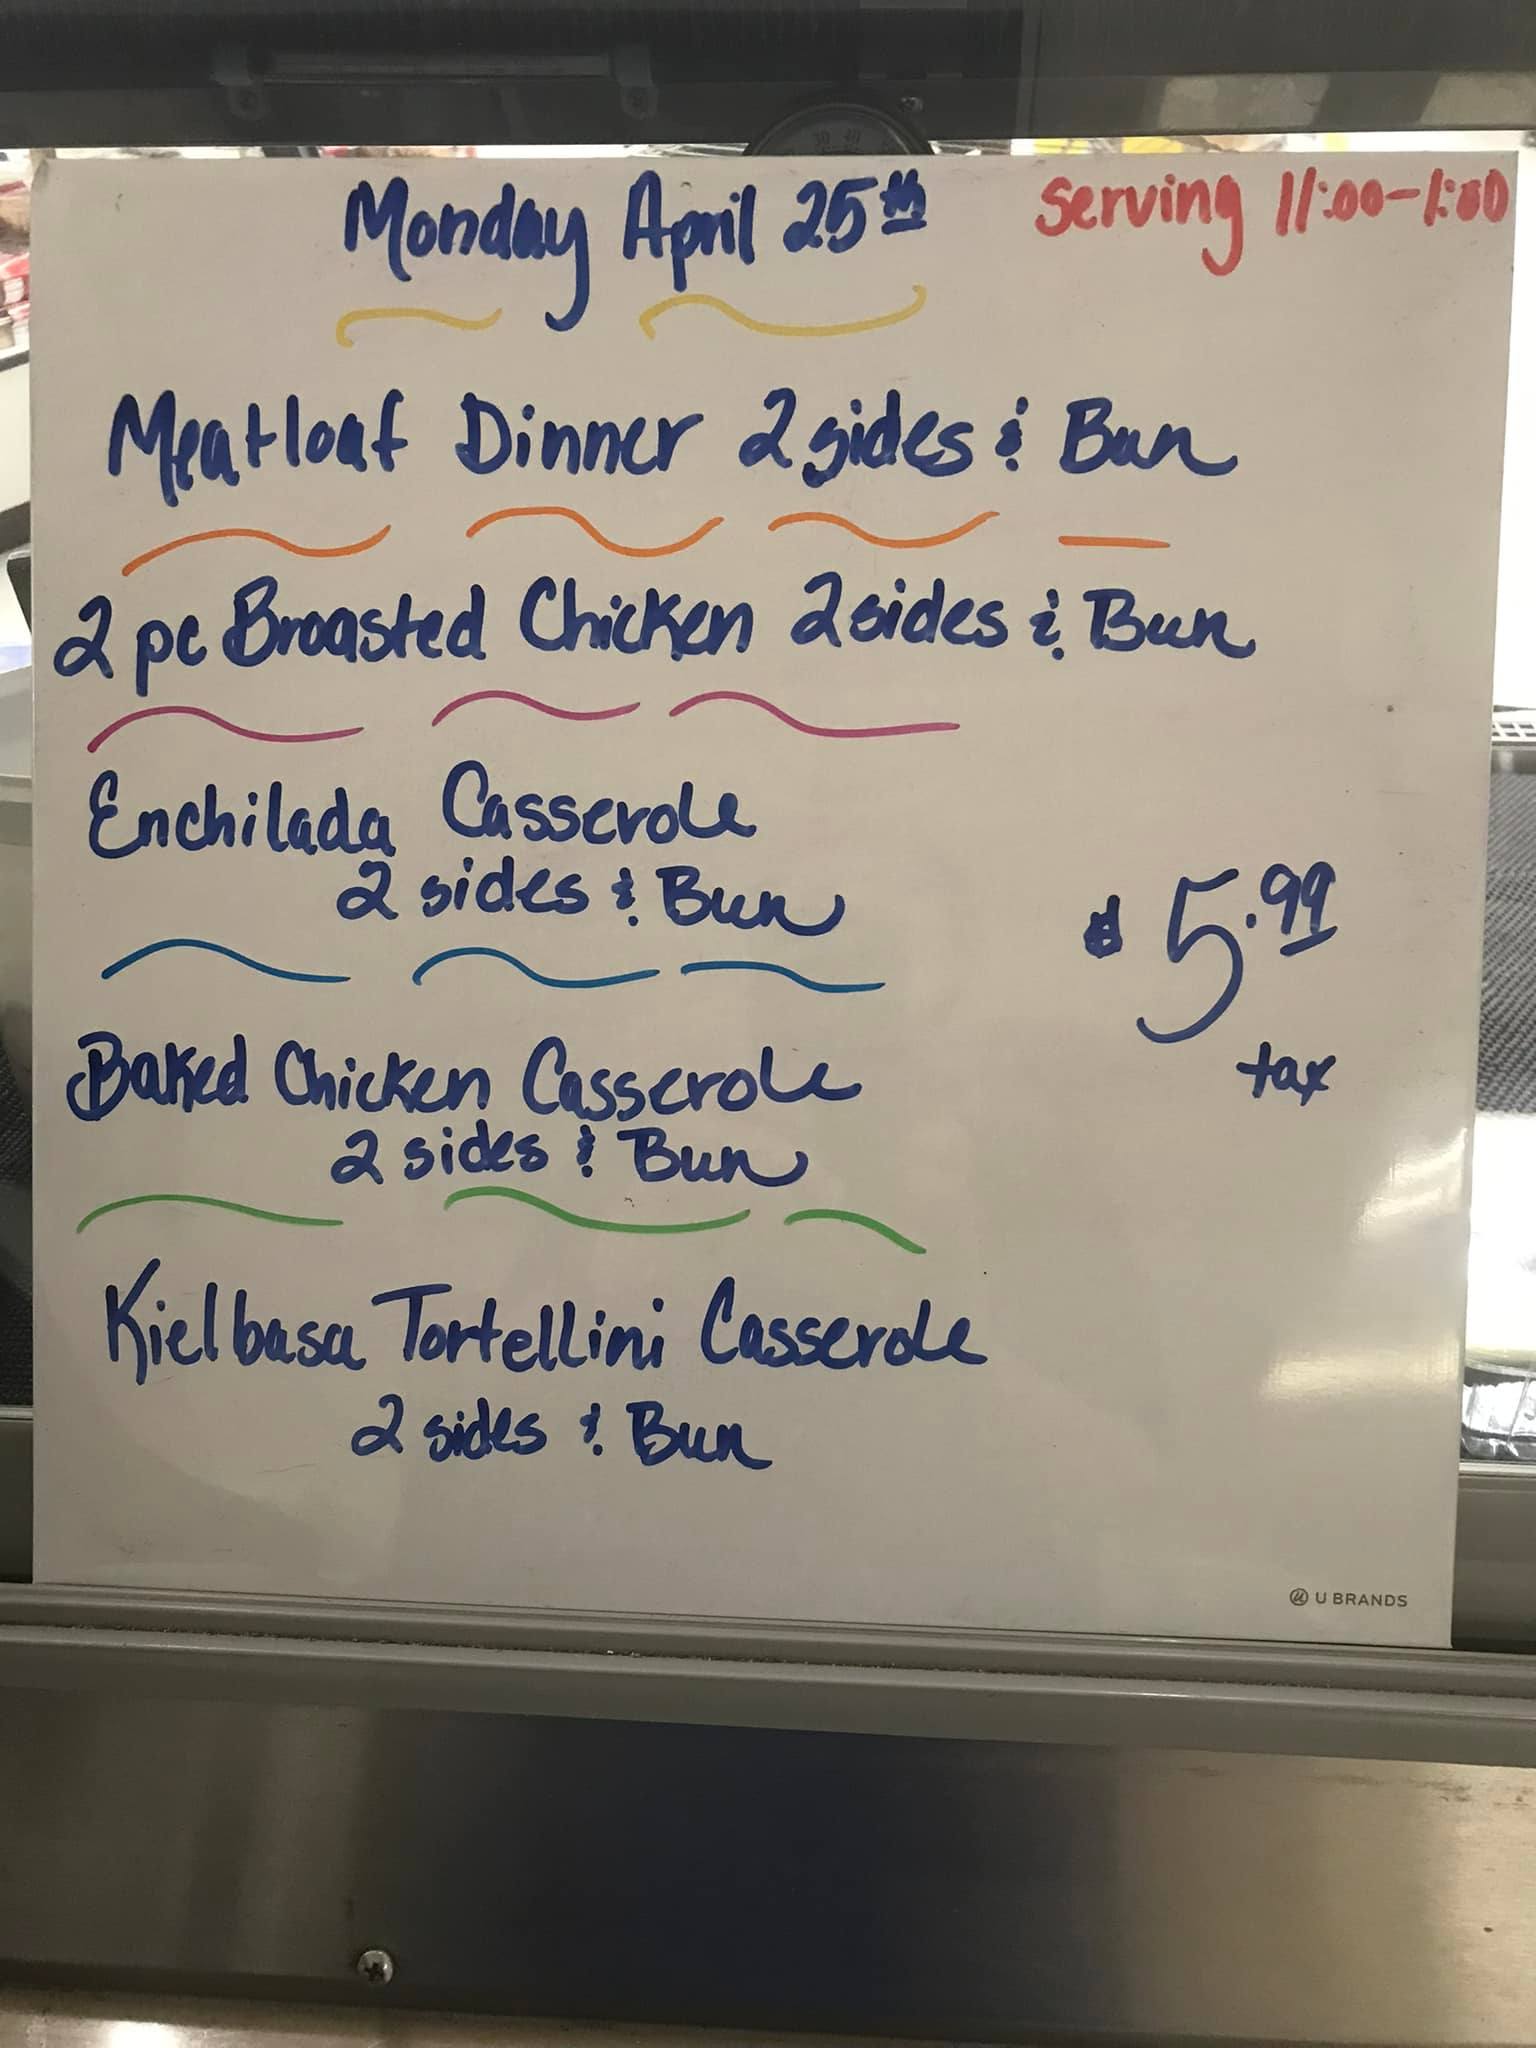 Monday April 25th
Serving 11:00-1:00
Meatloaf Dinner 2 sides & Bun
2 pc Broasted Chicken 2 sides & Bun
Enchilada Casserole
2 sides & Bun
$5.99
tax
Baked Chicken Casserole
2 sides & Bun
Kielbasa Tortellini Casserole
2 sides & Bun
U BRANDS